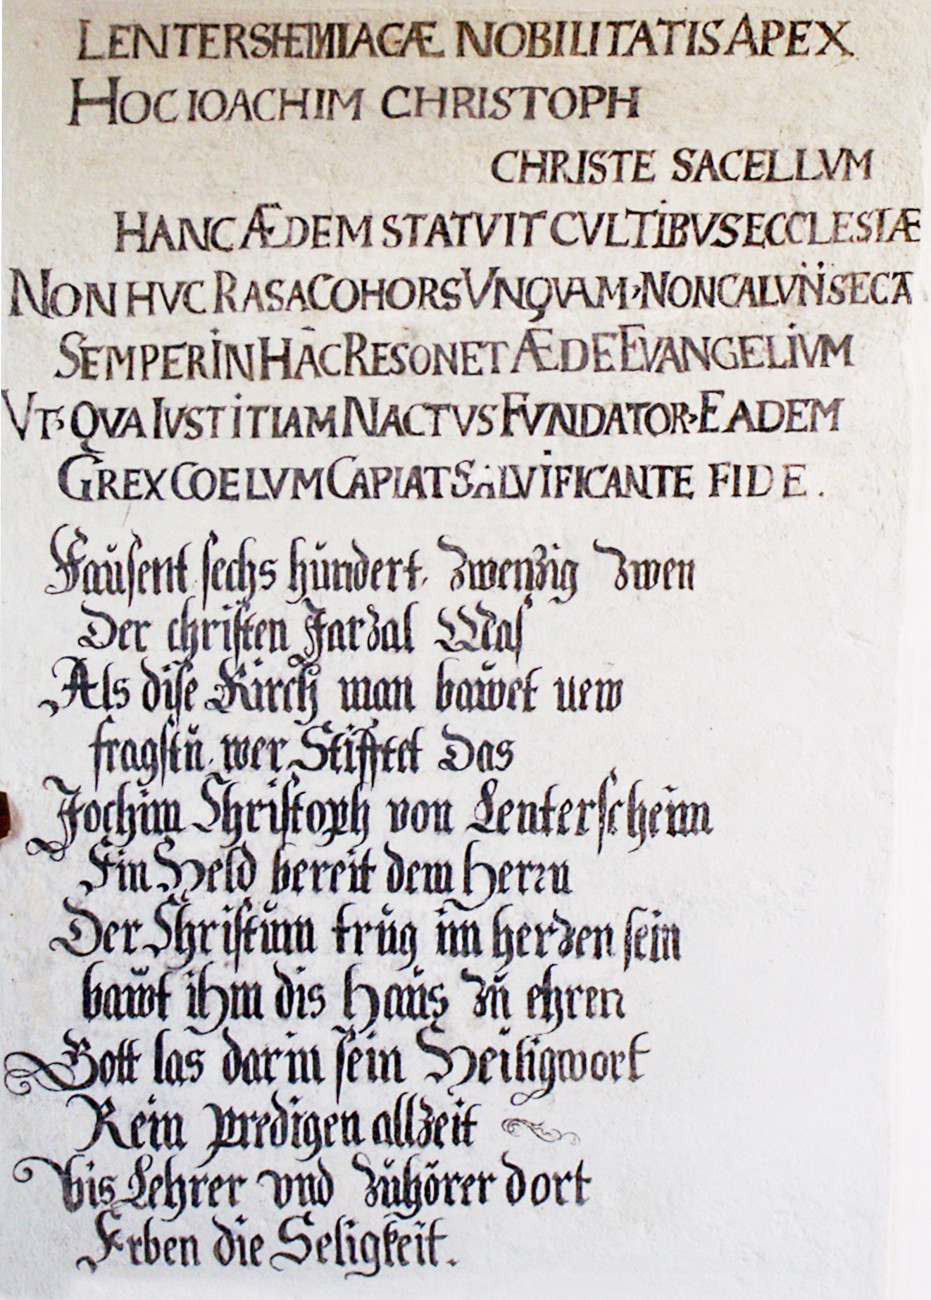 LENTERSHEIMIAGÆ NOBILITATIS APEX
HOC IOACHIM CHRISTOPH
CHRISTE SACELLVM
HANC ÆDEM STATVIT CVLTIBVS ECCLESIÆ
NON HVC RASA COHORS VNQVAM, NON CALVÏÑ SECTA
SEMPER IN HÂC RESONET ÆDE EVANGELIVM
VT, QVA IVSTITIAM NACTVS FVNDATOR, EADEM
GREX COELVM CAPIAT SALVIFICANTE FIDE.
Tausent sechs hundert, zwenzig zwen
Der christen Jarzal Was
Als dise Kirch man bawet new
fragstu, wer Stifftet Das
Jochim Christoph von Lenterscheim
Ein Held bereit dem Herrn
Der Christum trug im herzen sein
bawt ihm dis Haus zu ehren
Gott las darin sein Heiligwort
Rein predigen allzeit
bis Lehrer vnd zuhörer dort
Erben die Seligkeit.